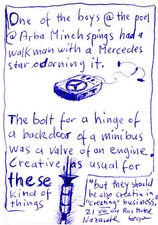 One of the boys @ the pool
@ Arba Minch springs had a
walkman with a Mercedes
star adorning it.
The bolt for a hinge of
a backdoor of a minibus
was a valve of an engine.
Creative, as usual for
these
kind of
things
"but they should
be also creative in
"creating" business.
21 VIII Ras Hotel
Nazareth